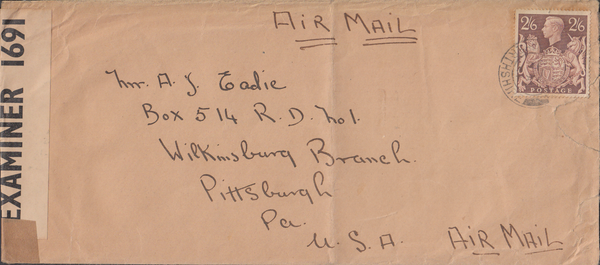 AIR MAIL
2/6 2/6
POSTAGE
EXAMINER 1691
Mr. A. J. Eadie
Box 514 R. D. No 1.
Wilkinsburg Branch.
Pittsburgh
Pa.
U. S. A.
AIR MAIL